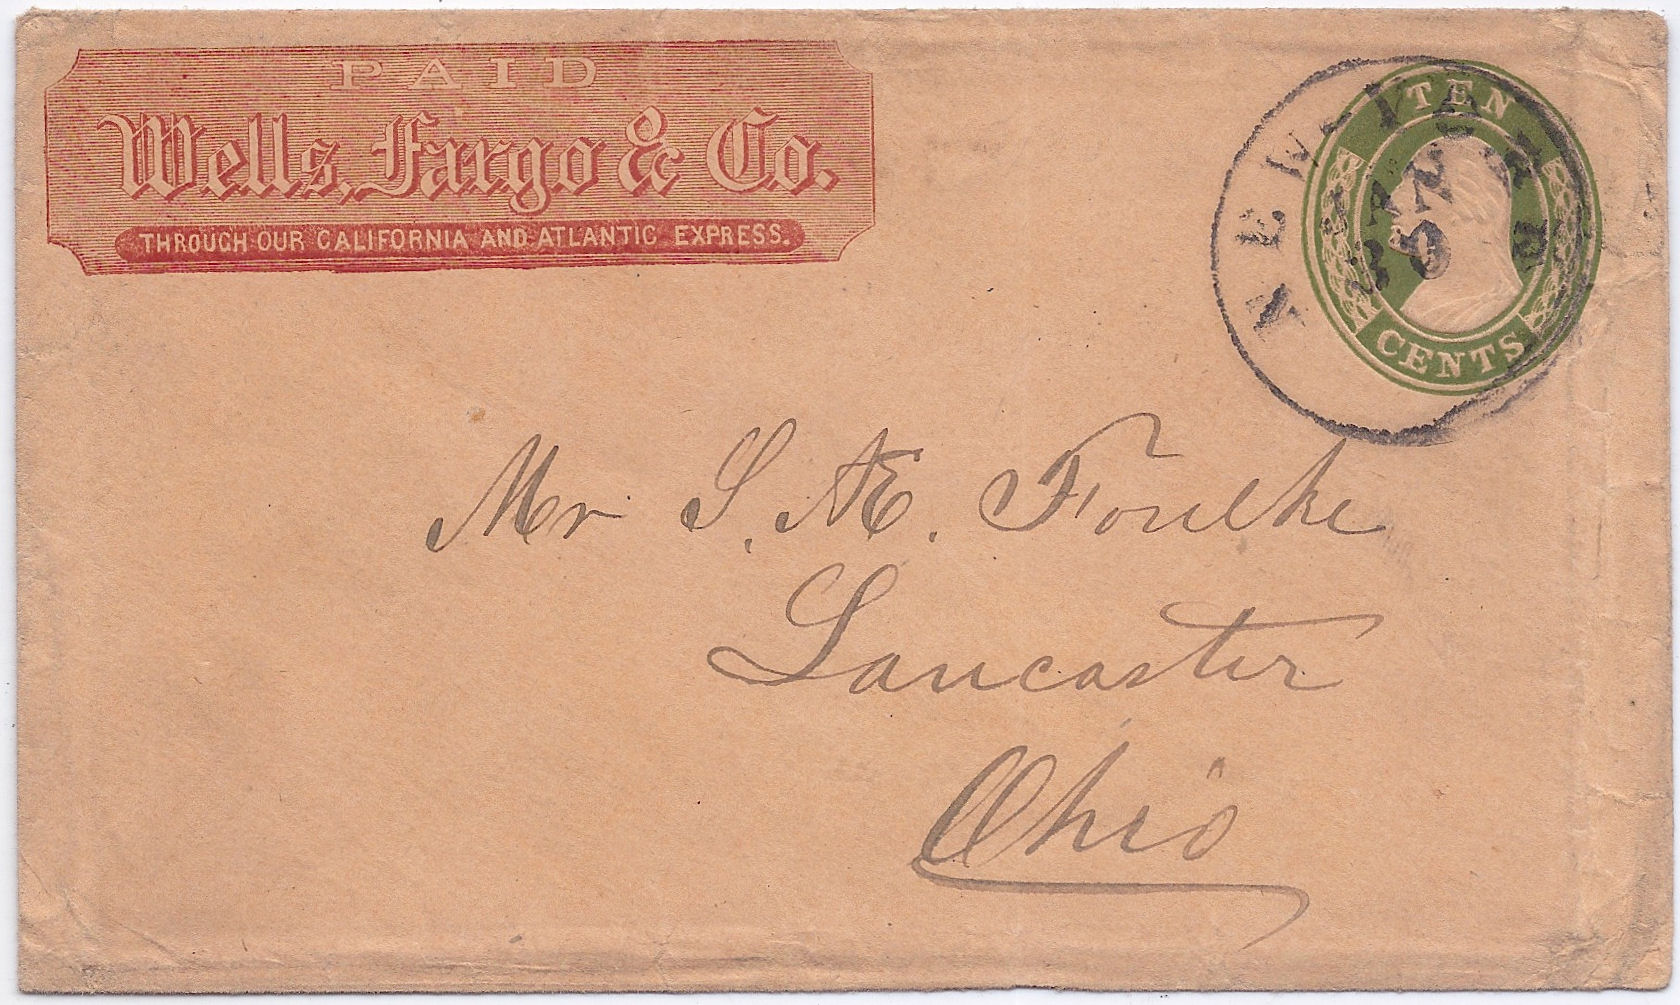 PAID
Wells, Fargo & Co.
THROUGH OUR CALIFORNIA AND ATLANTIC EXPRESS.
TEN
CENTS
NEW-YORK
JAN
30
Mr S. A E. Foulke
Lancaster
Ohio